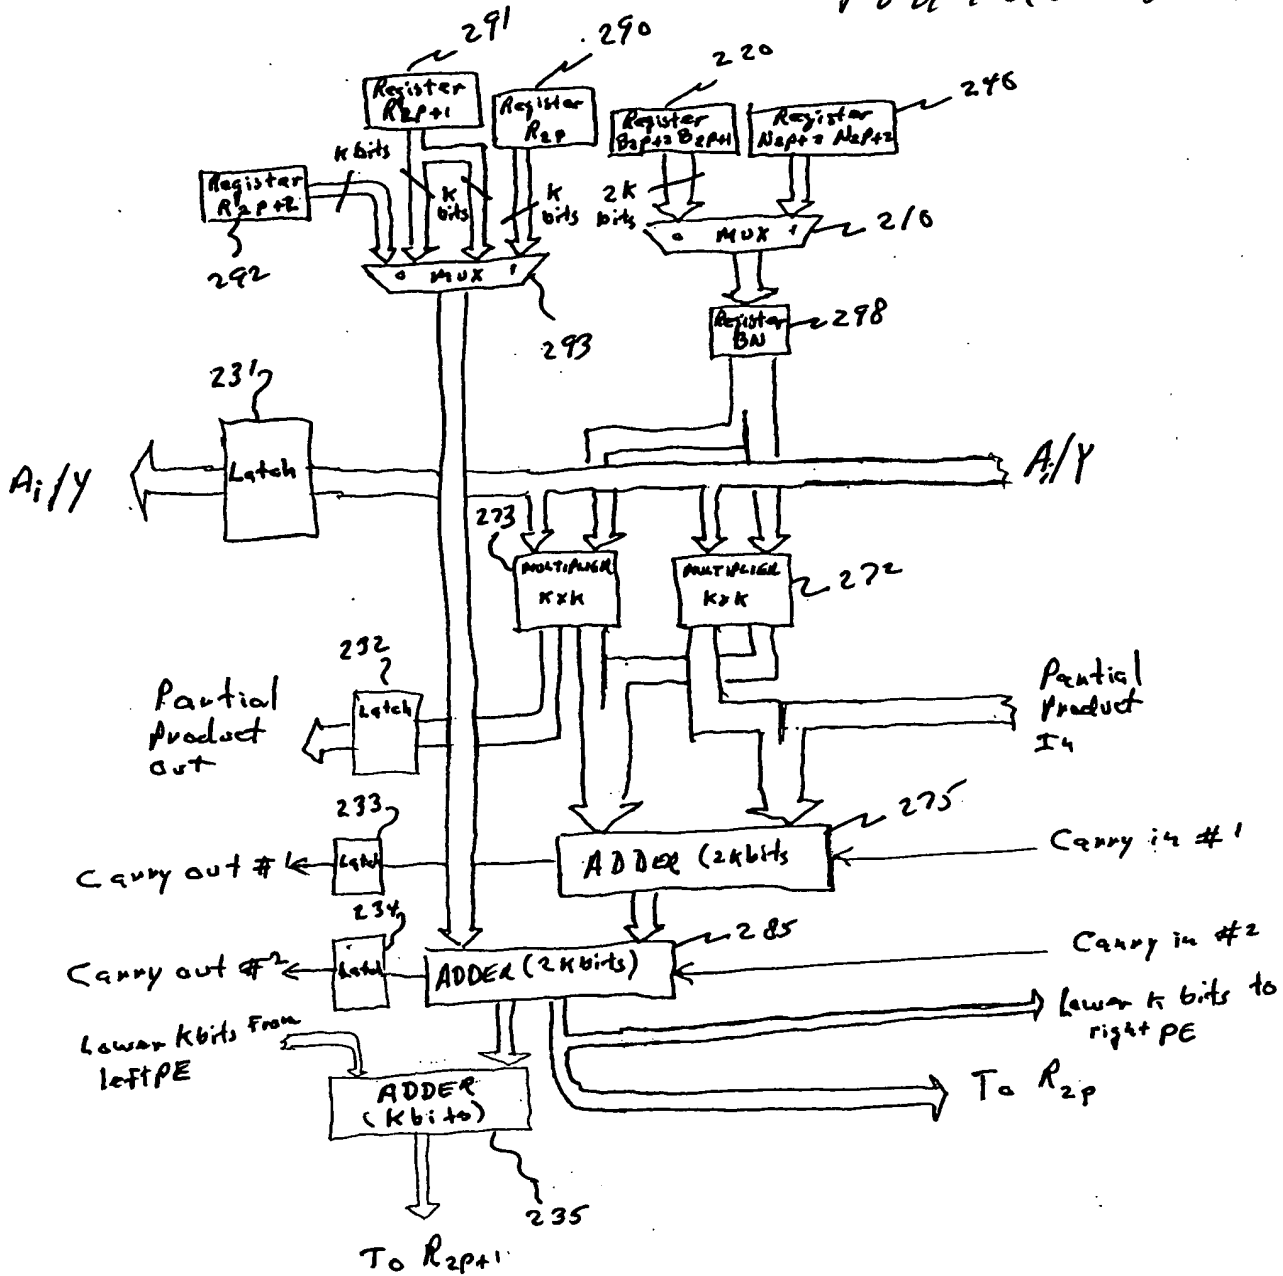 291
290
220
246
Register
R2p+1
Register
R2p
Register
B2p+2 B2p+1
Register
K bits
Register
R2p+2
K
bits
K
bits
2K
bits
0 MUX 1
210
292
0 MUX 1
293
Register
BN
298
231
Latch
Ai/Y
Ai/Y
273
MULTIPLIER
KxK
MULTIPLIER
KxK
272
232
Latch
Partial
Product
out
Partial
Product
In
233
275
Carry out #1
Latch
ADDER (2K bits
Carry in #1
234
285
Carry out #2
Latch
ADDER (2K bits)
Carry in #2
Lower K bits From
left PE
Lower K bits to
right PE
ADDER
(K bits)
To R2p
235
To R2p+1